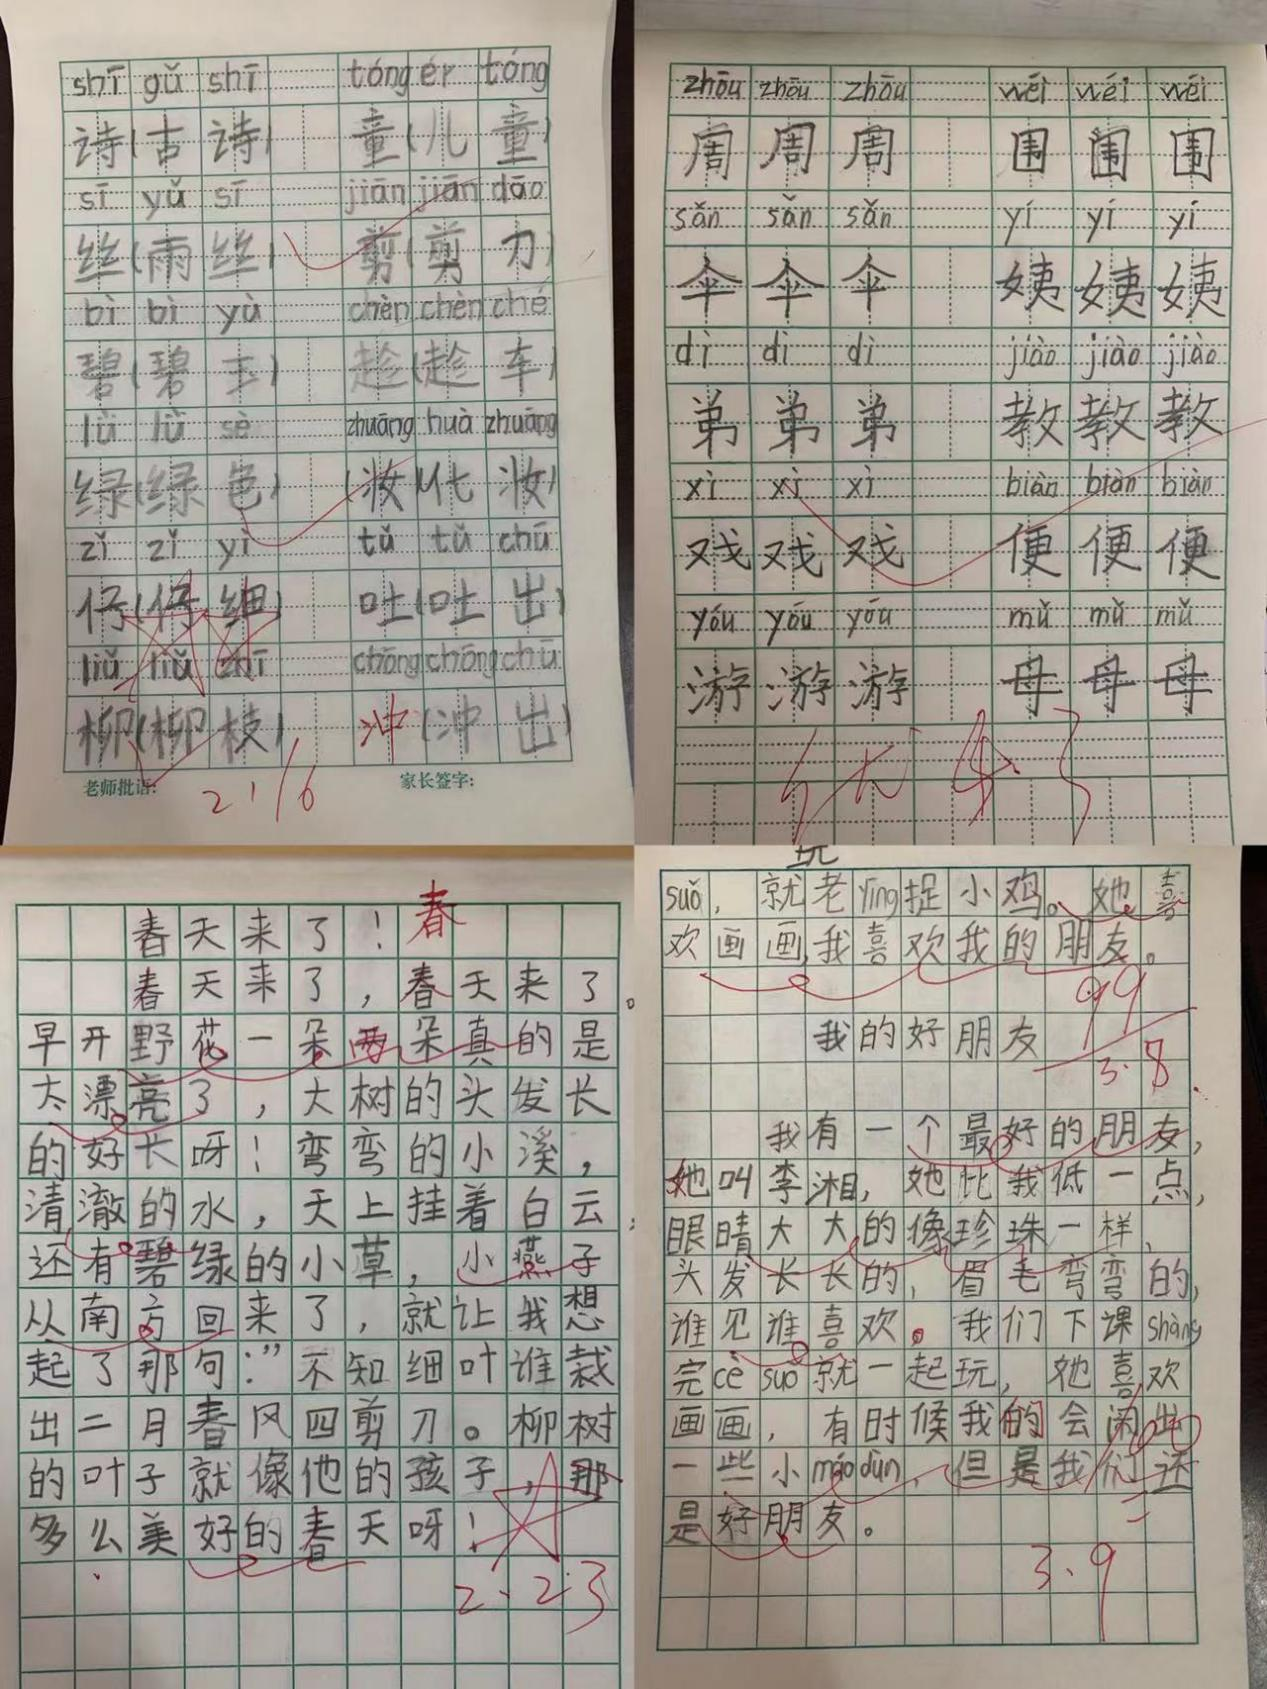 shī gǔ shī tóng ér tóng
诗(古诗) 童(儿童)
sī yǔ sī jiān jiān dāo
丝(雨丝) 剪(剪刀)
bì bì yù chèn chèn chē
碧(碧玉) 趁(趁车)
lǜ lǜ sè zhuāng huà zhuāng
绿(绿色) (妆(化妆)
zǐ zǐ yì tǔ tǔ chū
仔(仔细) 吐(吐出)
liǔ liǔ zhī chōng chōng chū
柳(柳枝) 冲(冲出)
老师批语: 家长签字:
2.16
zhōu zhōu zhōu wéi wéi wéi
周 周 周 围 围 围
sǎn sǎn sǎn yí yí yí
伞 伞 伞 姨 姨 姨
dì dì dì jiào jiào jiào
弟 弟 弟 教 教 教
xì xì xì biàn biàn biàn
戏 戏 戏 便 便 便
yóu yóu yóu mǔ mǔ mǔ
游 游 游 母 母 母
春天来了! 春
春天来了,春天来了。
早开野花一朵两朵真的是
太漂亮了,大树的头发长
的好长呀!弯弯的小溪,
清澈的水,天上挂着白云,
还有碧绿的小草,小燕子
从南方回来了,就让我想
起了那句:”不知细叶谁裁
出二月春风四剪刀。柳树
的叶子就像他的孩子,那
多么美好的春天呀!
2.23
玩
suǒ,就老yīng捉小鸡。她喜
欢画画,我喜欢我的朋友。
99
我的好朋友
3.8
我有一个最好的朋友,
她叫李湘,她比我低一点,
眼睛大大的像珍珠一样,
头发长长的,眉毛弯弯的,
谁见谁喜欢。我们下课shàng
完cè suǒ就一起玩,她喜欢
画画,有时候我的会闹出
一些小máo dùn,但是我们还
是好朋友。
100
3.9